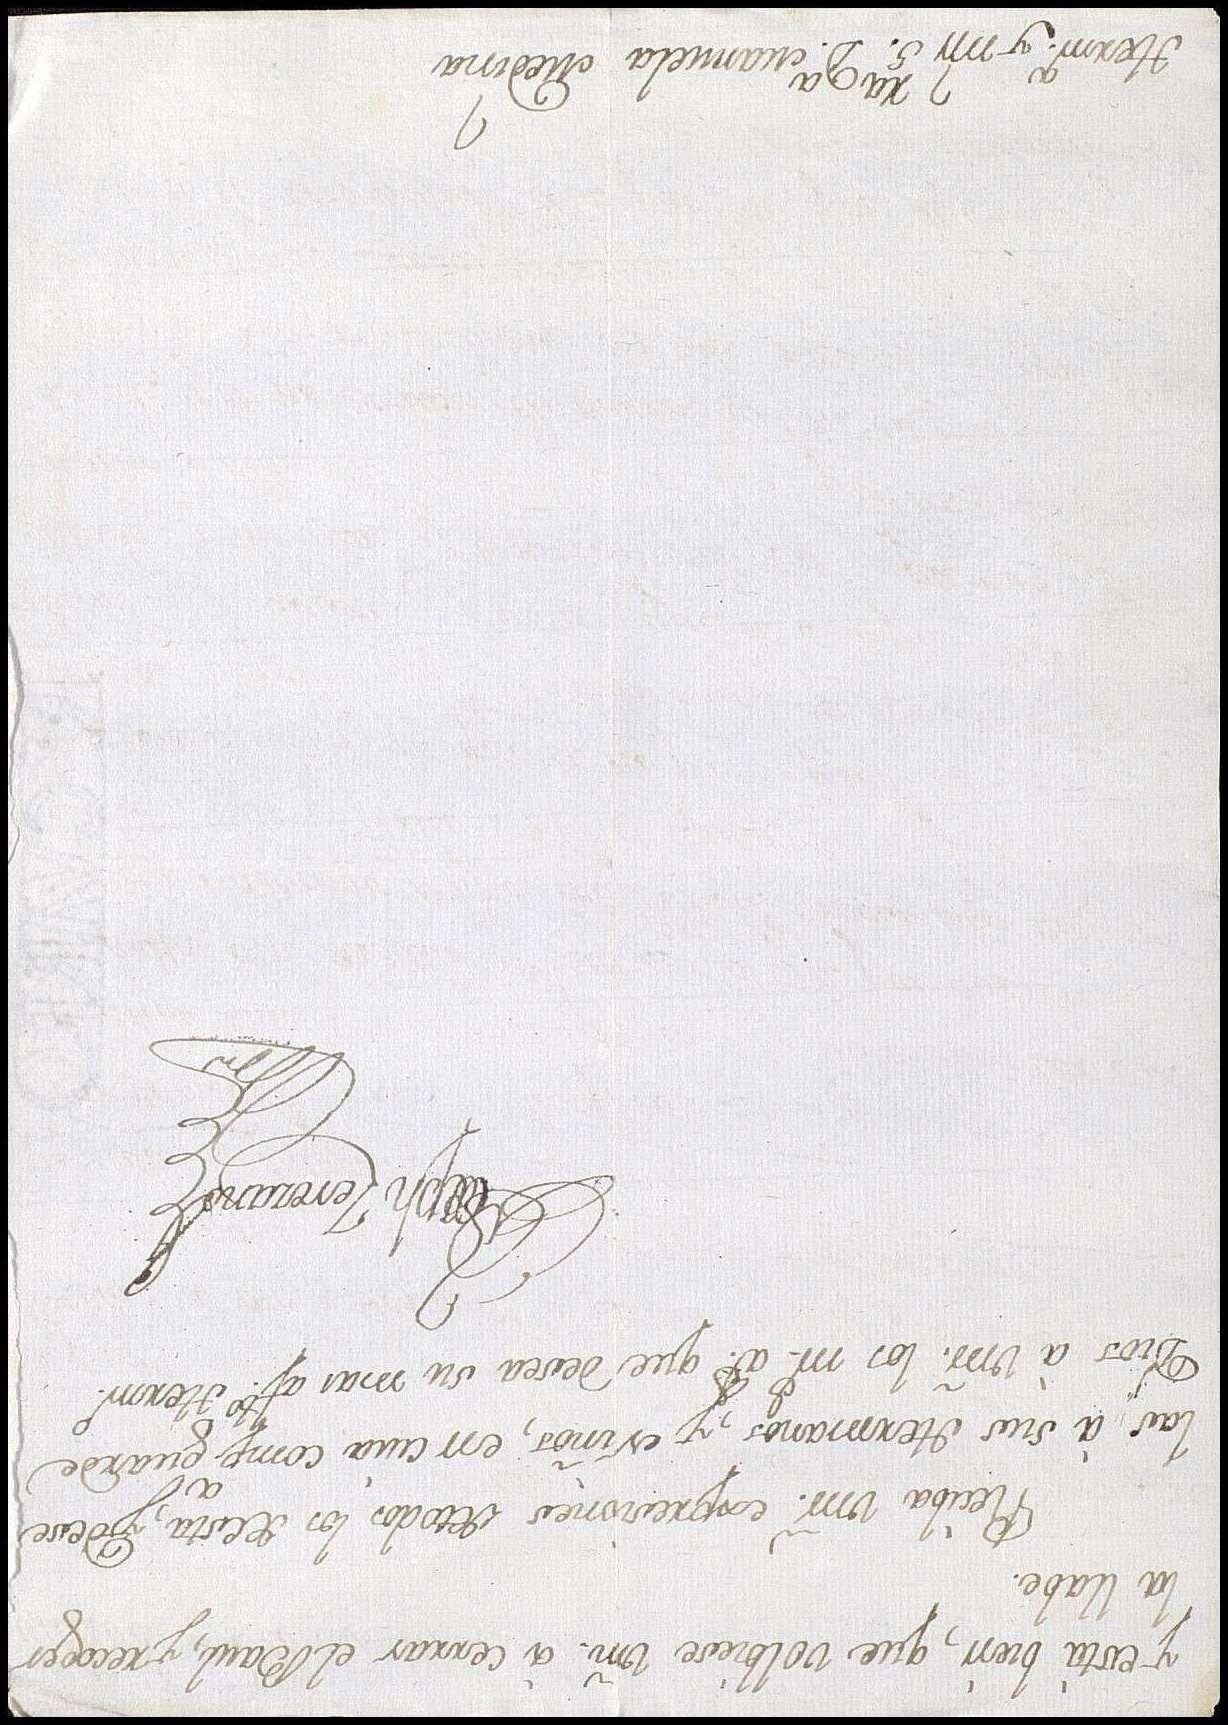 y está bien, que volbiese Vm̃. à cerrar el Baul, y recoger
la llabe.
Reciba Vm̃. expresiones de todos los de esta, y dese
las à sus Hermanos, y Niños, en cuia comp.ª guarde
Dios à Vm̃. los m.s a.s que desea su mas af.to Herm.o
Joseph Texerano
Herm.ª y mui S.ra D.ª Manuela Medina